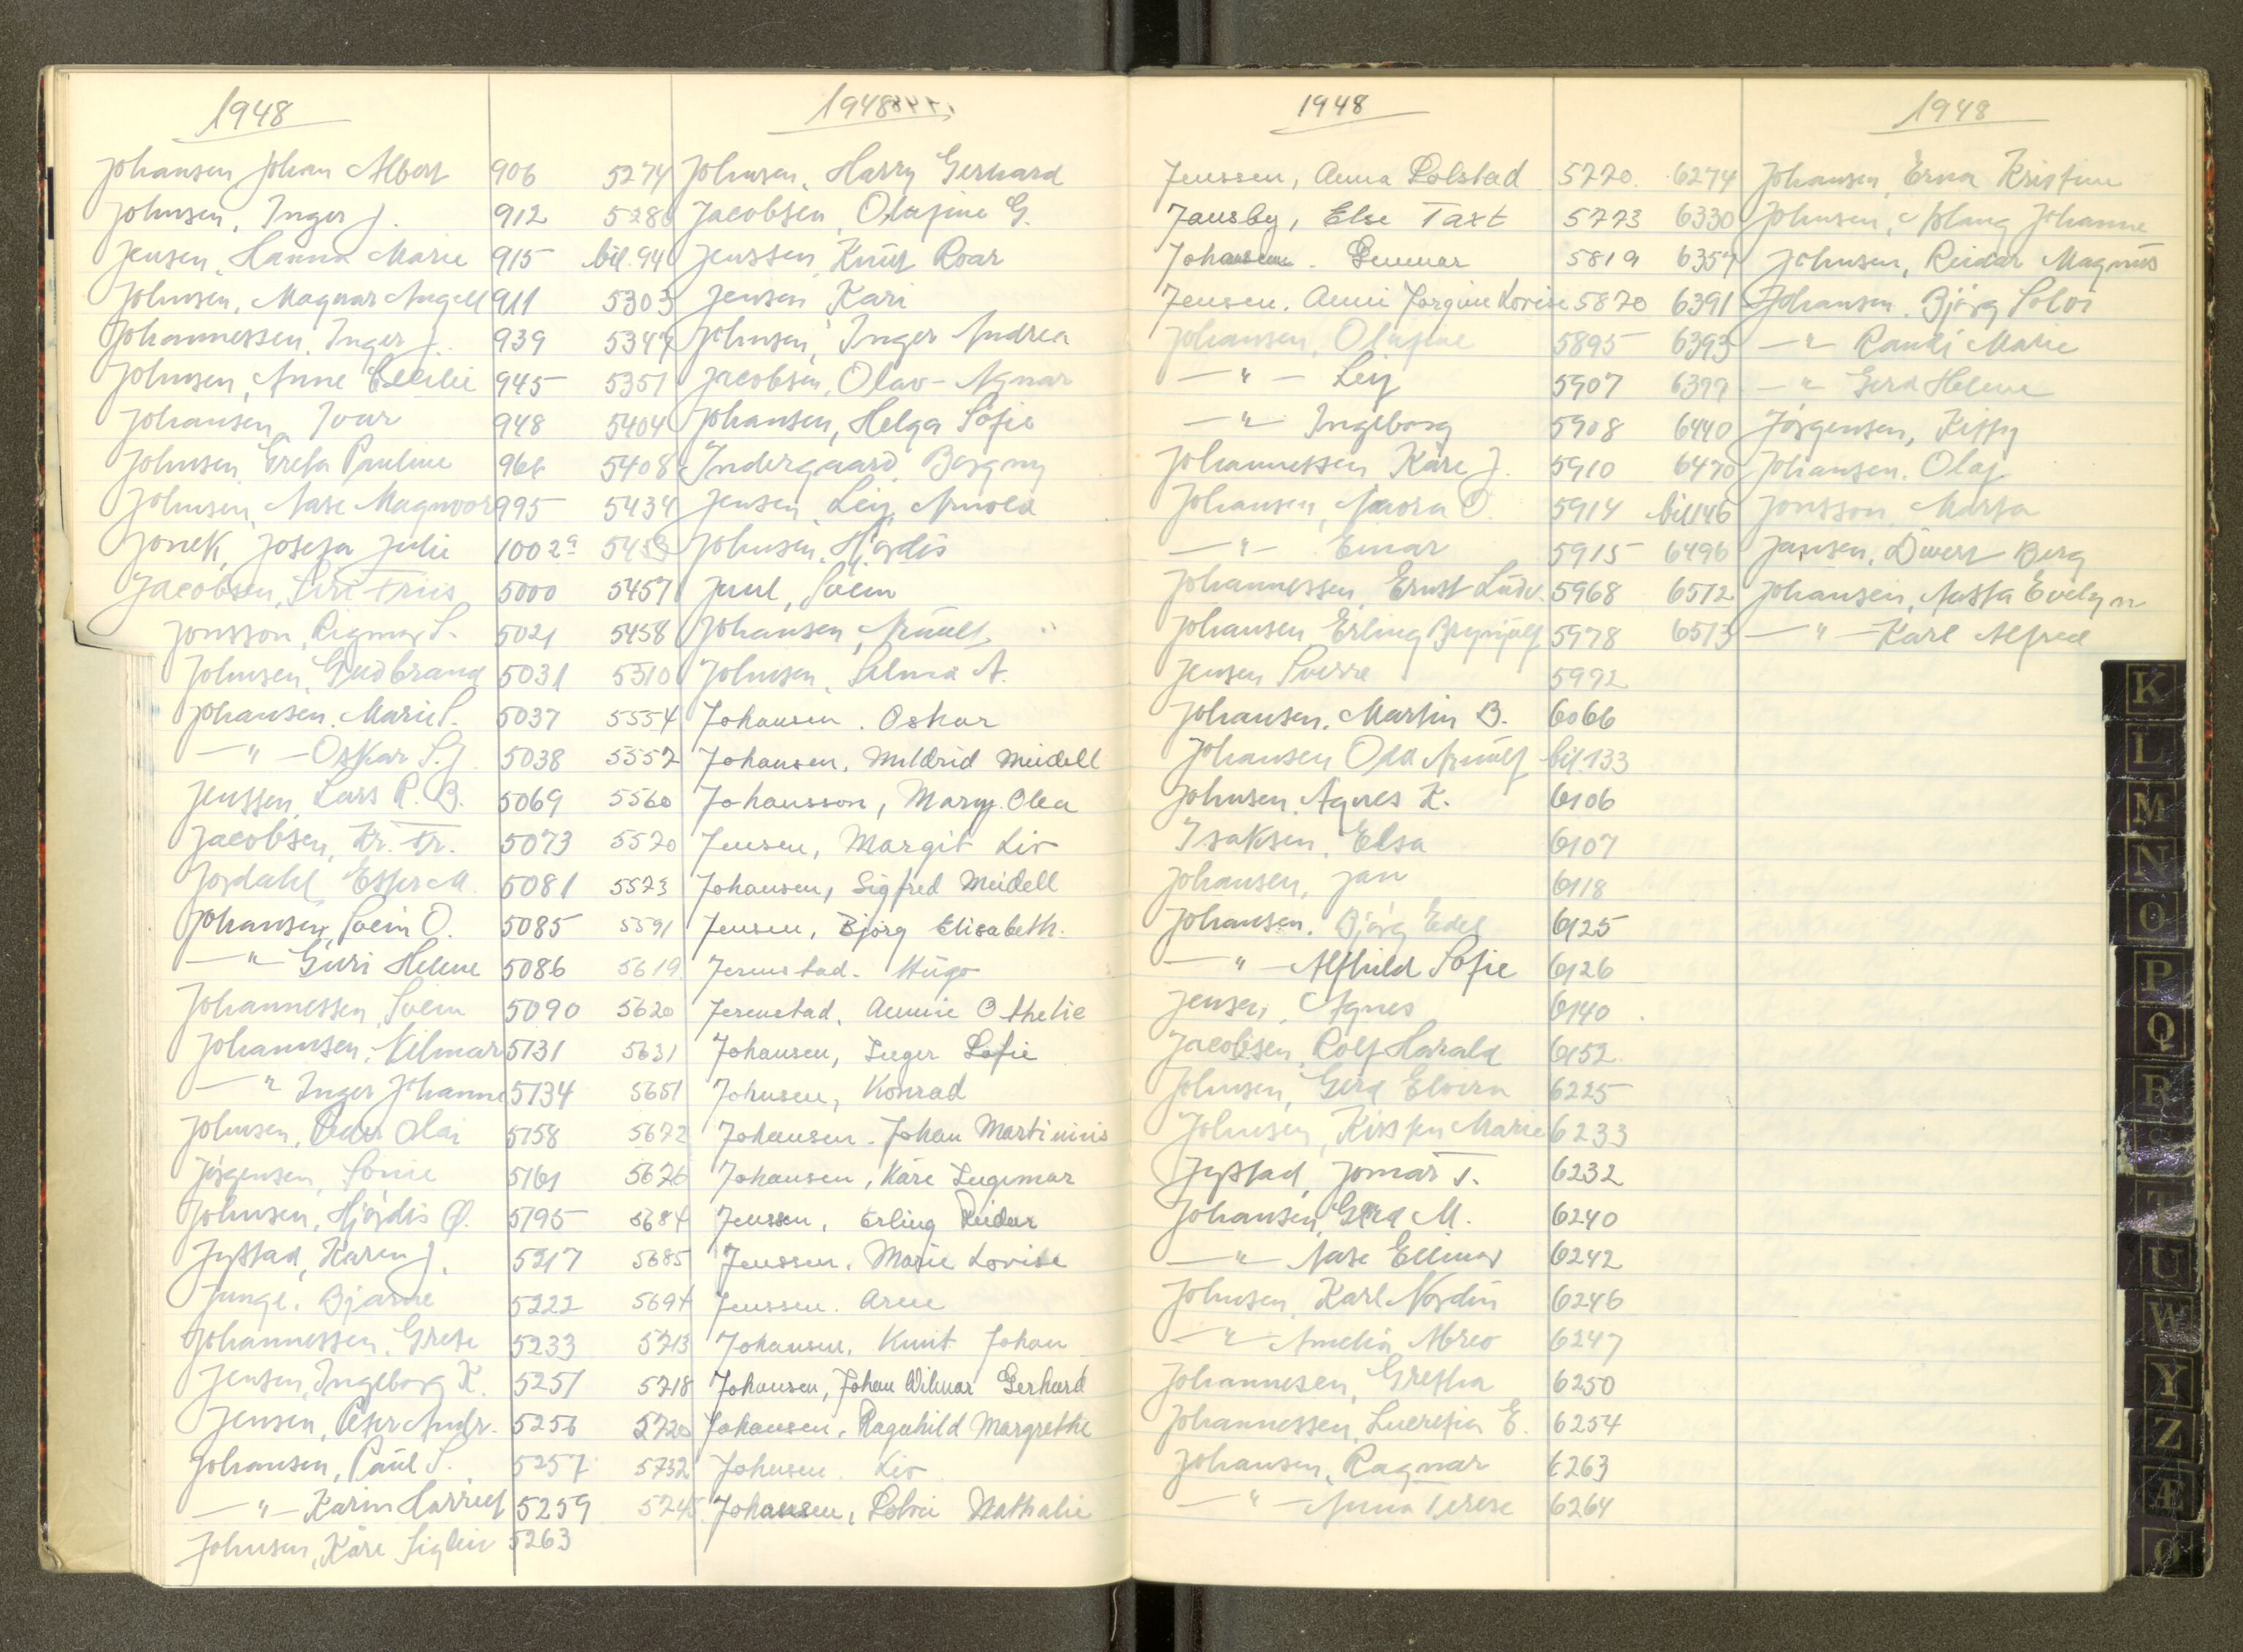 1948
Johansen Johan Albert 906
Johnsen, Inger J. 912
Jensen, Hanna Marie 915
Johnsen, Magnar Angell 911
Johannessen, Inger J. 939
Johnsen, Anne Cecilie 945
Johansen, Ivar 948
Johnsen Greta Pauline 966
Johnsen, Aase Magnvor 995
Jonek, Josefa Julie 1002a
Jacobsen, Siri Friis 5000
Jonsson, Rigmor S. 5021
Johnsen, Gudbrand 5031
Johansen. Marie S. 5037
—"— Oskar S.J. 5038
Jenssen, Lars R. B. 5069
Jacobsen, Kr. Fr. 5073
Jordahl, Ester M. 5081
Johansen, Svein O. 5085
—"— Guri Helene 5086
Johannessen, Svein 5090
Johannsen, Vilmar 5131
—"— Inger Johanne 5134
Johnsen, Peder Olai 5158
Jörgensen, Sonie 5161
Johnsen, Hjördis O. 5195
Jystad, Karen J. 5217
Junge, Bjarne 5222
Johannessen, Grete 5233
Jensen, Ingeborg K. 5251
Jensen, Peter Andr. 5256
Johansen, Paul S. 5257
—"— Karin Harriet 5259
Johnsen, Kåre Siglin 5263
1948
5274 Johnsen, Harry Gerhard
5280 Jacobsen, Olufine G.
bil. 94 Jenssen, Knut Roar
5303 Jensen Kari
5347 Johnsen, Inger Andrea
5351 Jacobsen, Olav-Agnar
5404 Johansen, Helga Sofie
5408 Indergaard, Borgny
5434 Jensen, Leif Arnold
5453 Johnsen, Hjördis
5457 Juul, Svein
5458 Johansen, Arnulf
5310 Johnsen, Selma A.
5554 Johansen. Oskar
5557 Johansen, Mildrid Meidell
5560 Johansson, Mary. Olea
5570 Jensen, Margit Liv
5573 Johansen, Sigfred Meidell
5591 Jensen, Bjørg Elisabeth.
5619 Jerenstad. Hugo
5620 Jerenstad, Annie Othelie
5631 Johansen, Inger Sofie
5651 Johnsen, Konrad
5672 Johansen. Johan Martinius
5676 Johansen, Kåre Ingemar
5684 Jenssen, Erling Reidar
5685 Jenssen, Marie Lovise
5694 Jenssen. Arne
5713 Johansen, Knut Johan
5718 Johansen, Johan Wilmar Gerhard
5720 Johansen, Ragnhild Margrethe
5732 Johnsen. Liv
5745 Johansen, Solvei Nathalie
1948
Jenssen, Anna Rolstad 5770
Jansby, Else Taxt 5773
Johansen. Gunnar 5819
Jensen. Anni Jorgine Lovise 5870
Johansen, Olufine 5895
—"— Leif 5907
—"— Ingeborg 5908
Johannessen Kåre J. 5910
Johansen, Naora O. 5914
—"— Einar 5915
Johannessen, Ernst Ludv. 5968
Johansen Erling Brynjulf 5978
Jensen Sverre 5992
Johansen, Martin B. 6066
Johansen Odd Arnulf bil. 133
Johnsen, Agnes K. 6106
Isaksen, Elsa 6107
Johansen, Jan 6118
Johansen, Bjørg Edel 6125
—"— Alfhild Sofie 6126
Jensen, Agnes 6140
Jacobsen, Rolf Harald 6152
Johnsen, Gerd Elvira 6225
Johnsen, Kirsten Marie 6233
Jystad, Jomar T. 6232
Johansen, Gerd M. 6240
—"— Aase Ellinor 6242
Johnsen, Karl Nordin 6246
—"— Amelia 6247
Johannesen, Gretha 6250
Johannessen, Lucretia E. 6254
Johansen, Ragnar 6263
—"— Anna Terese 6264
1948
6274 Johansen, Erna Kristine
6330 Johnsen, Aslaug Johanne
6357 Johnsen, Reidar Magnus
6391 Johansen. Bjørg Solvi
6393 —"— Randi Marie
6399 —"— Gerd Helene
6440 Jörgensen, Kitty
6470 Johansen. Olaf
bil 146 Jonsson, Marta
6496 Jansen, Sivert Berg
6512 Johansen, Aasta Evelyn
6513 —"— Karl Alfred
K
L
M
N
O
P
Q
R
S
T
U
W
Y
Z
Æ
Ø